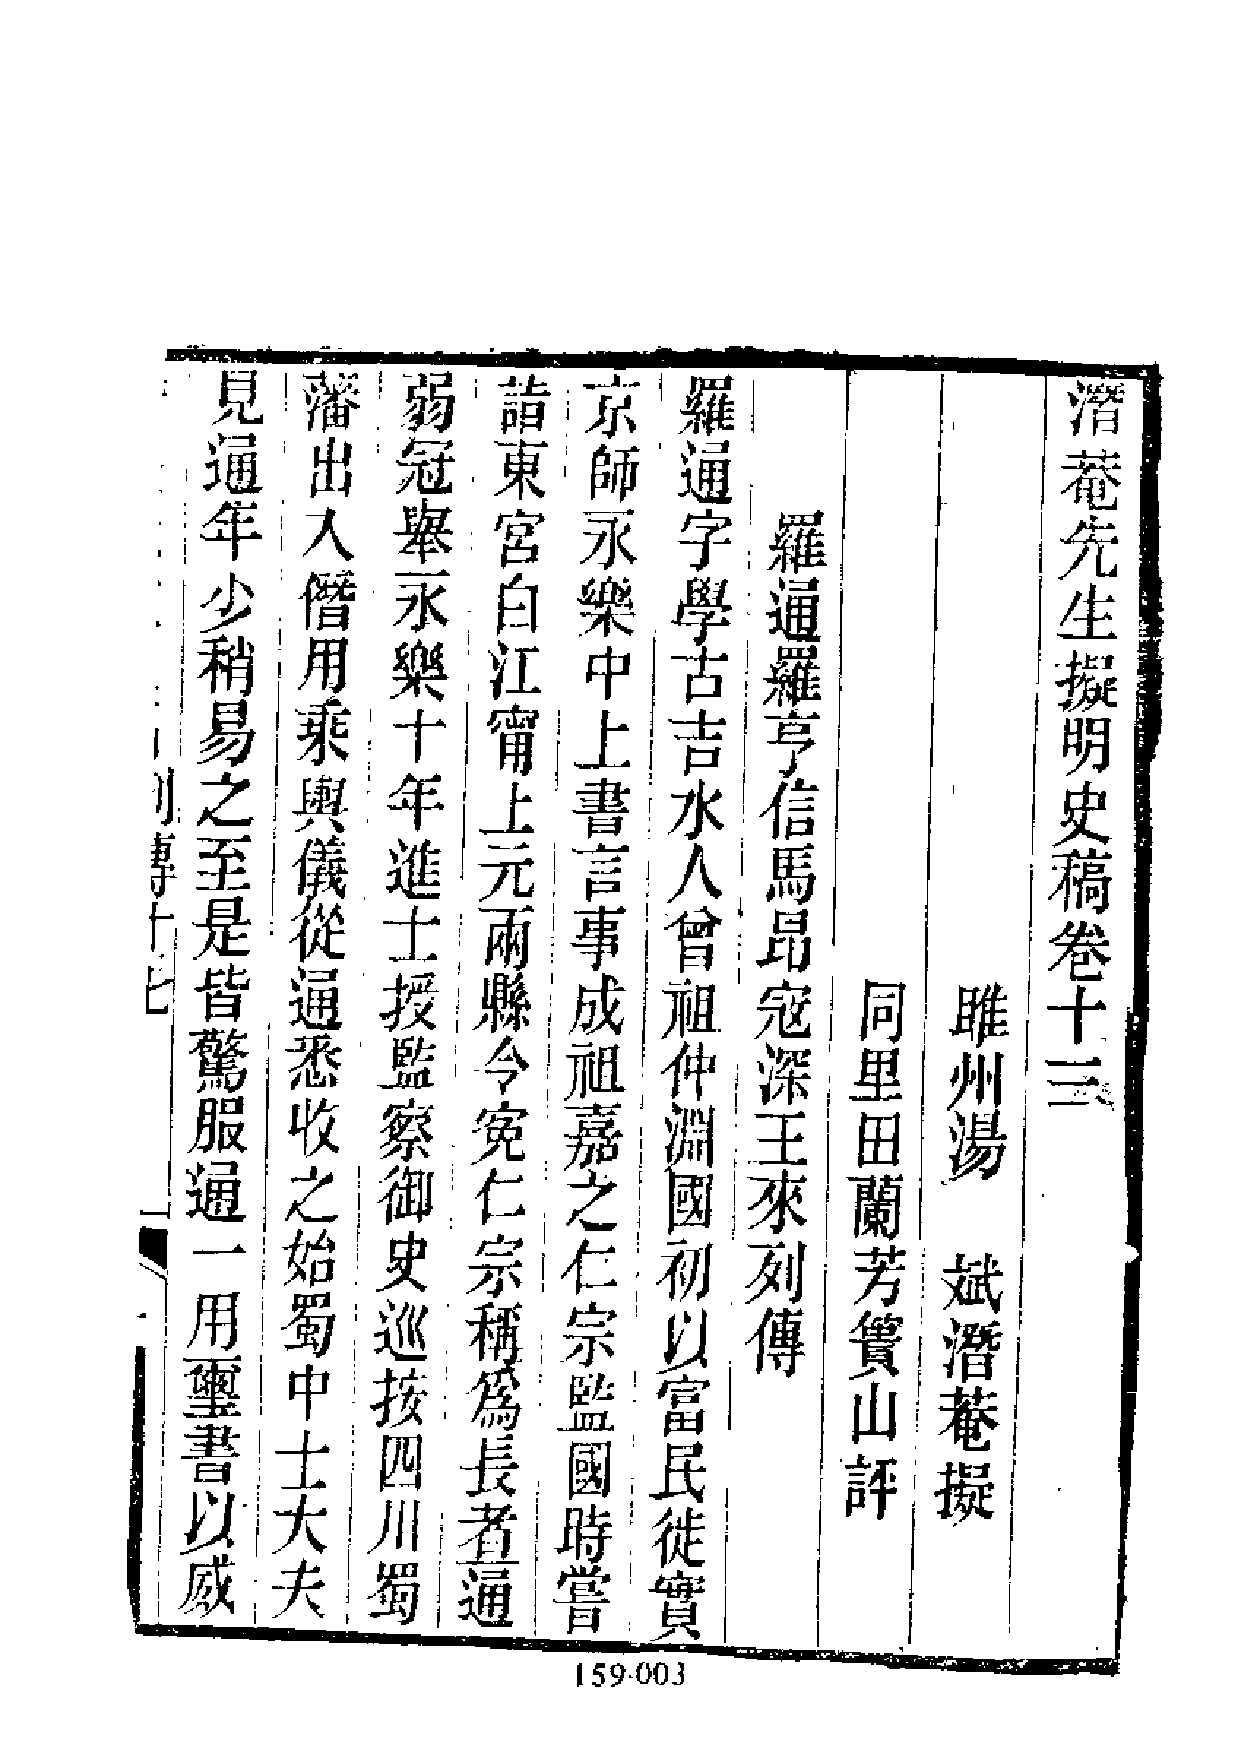 潛菴先生擬明史稿卷十三
睢州湯　斌潛菴擬
同里田蘭芳簣山評
羅通羅亨信馬昂寇深王來列傳
羅通字學古吉水人曾祖仲淵國初以富民徙實
京師永樂中上書言事成祖嘉之仁宗監國時嘗
詣東宮白江甯上元兩縣令寃仁宗稱爲長者通
弱冠舉永樂十年進士授監察御史巡按四川蜀
藩出入僭用乘輿儀從通悉收之始蜀中士大夫
見通年少稍易之至是皆驚服通一用璽書以威
列傳十七
一
159-003